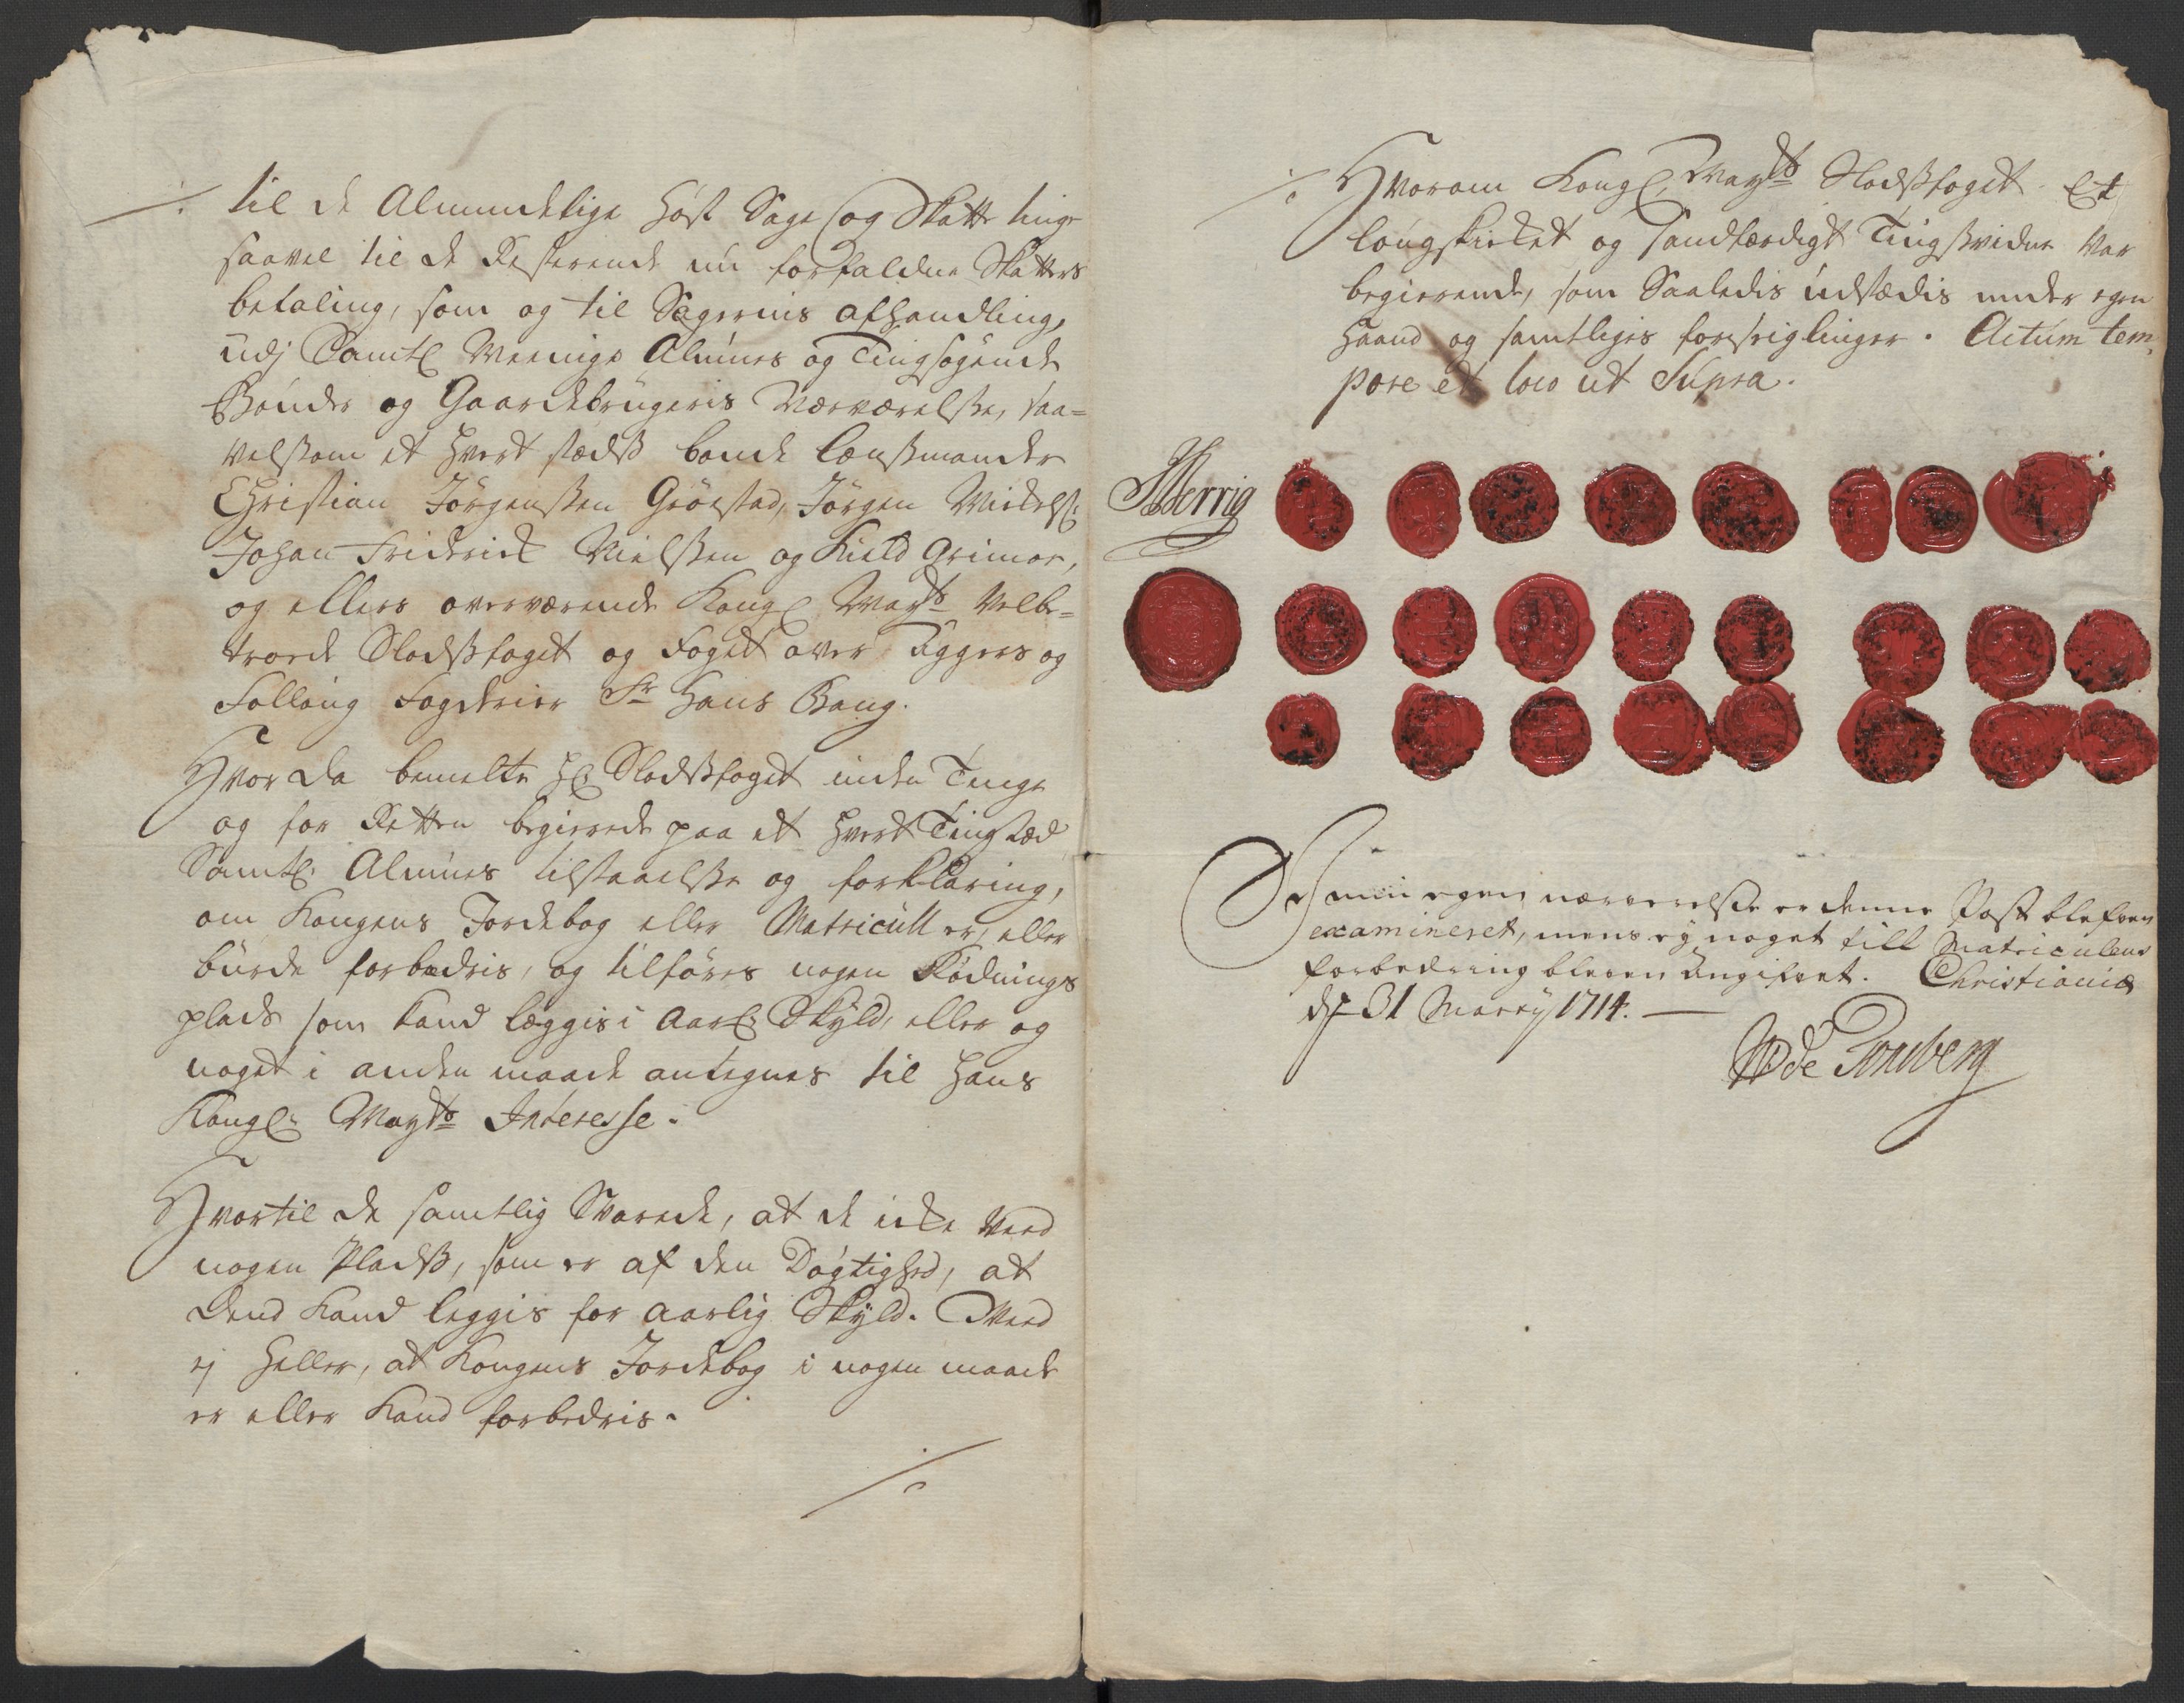 til de Almindelige Høst Sage og Skatte ting
saavel til de Resterende nu forfaldne Skatters
betaling, som og til Sagernis afhandling,
udj Samtl Meenige Almues og Tingsøgende
Bønder og Gaardebrugeris Nærværelsse, saa=
velsom et hvert stædß bonde Lensmænder
Christian Jørgenssen Grøestad, Jørgen Mickelß:
Johan Friderick Nielssen og Kield Grimør,
og ellers overværende Kongl Mayts Velbe=
troede Slodsfoget og Foget over Aggers og
Folloug Fogderier Sr Hans Bang.
Hvor da bemelte Hr Slodsfoget inden Tinge
og for Retten begierede paa et hvert Tingstæd
Samtl: Almues tilstaaelsse og forklaring,
om Kongens Jordebog eller Matricull er, eller
burde forbedris, og tilføres nogen Rødnings
plads som kand læggis i Aarl: Skyld, eller og
noget i anden maade antegnes til Hans
Kongl: Mayts Interesse.
Hvortil de samtlig Svarede, at de icke veed
nogen Pladß, som er af den Døgtighed, at
dend kand leggis for aarlig Skyld. Veed
ej heller, at Kongens Jordebog i nogen maade
er eller kand forbedris.
Hvorom Kongl, Mayts Slodsfoget Et
lougskicket og sandfærdigt Tingsvidne var
begierende, som Saaledis udstædis under egen
haand og samtligis forseiglinger. Actum tem,
pore et loco ut Supra.
Werrig
I min egen nærverelsse er denne Post blefven
examineret, mens ey noget till Matriculens
forbedring bleven angifvet. Christiania
dn 31 Marty 1714.
W de Tonsberg